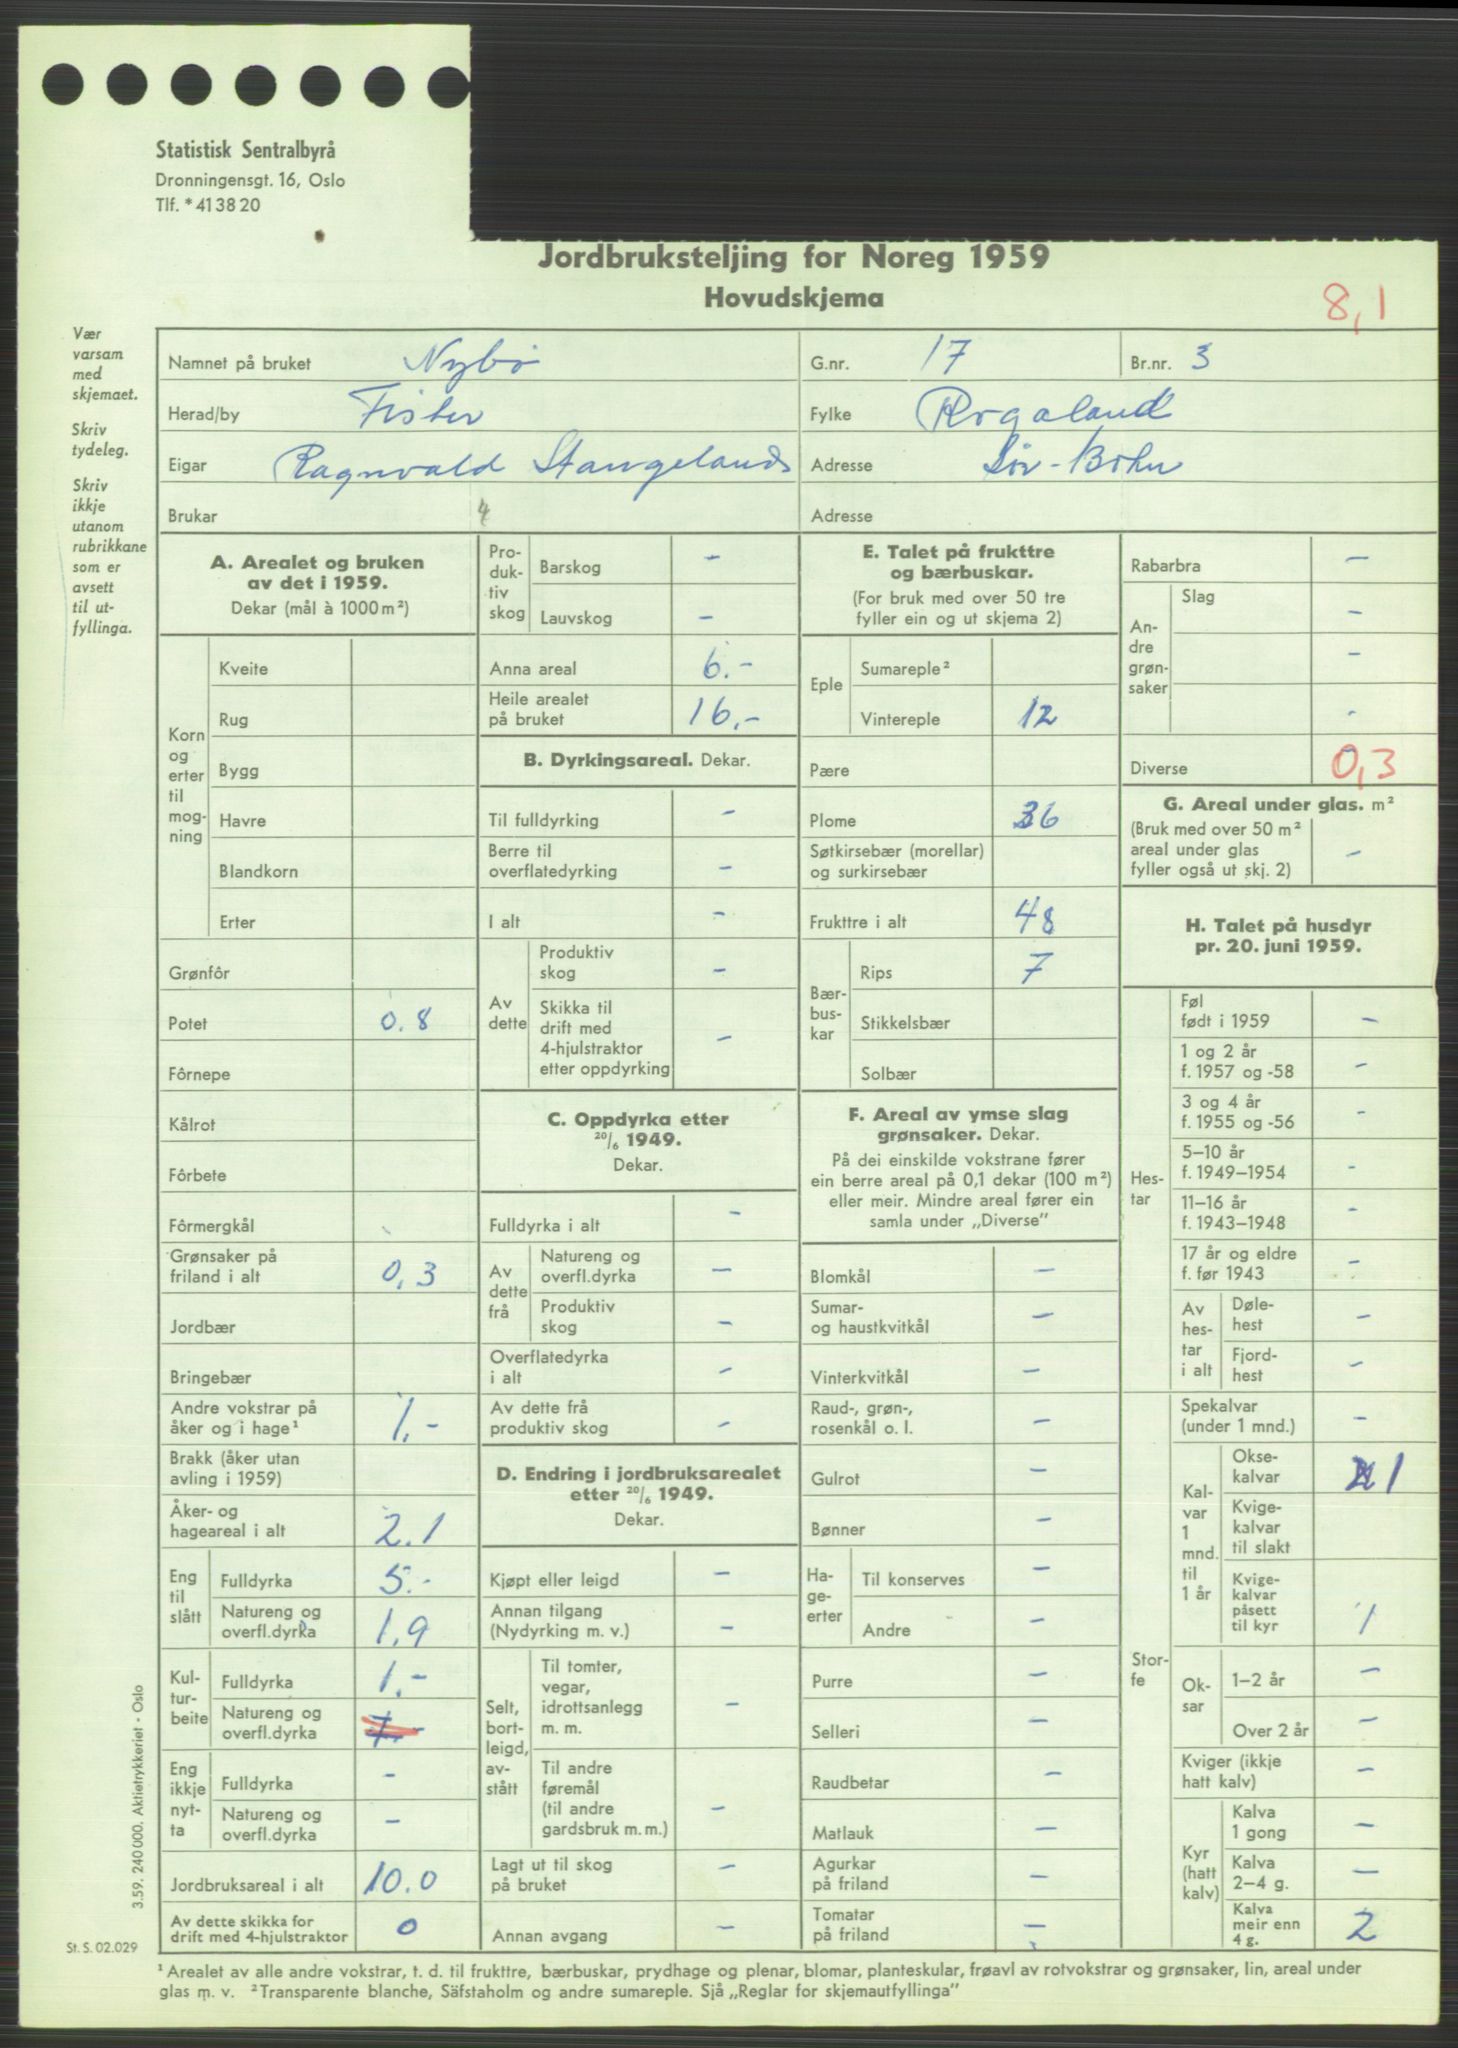 Statistisk Sentralbyrå
Dronningensgt. 16, Oslo
Tlf. * 41 38 20
Jordbruksteljing for Noreg 1959
Hovudskjema
8,1
Vær
varsam
med
skjemaet.
Skriv
tydeleg.
Skriv
ikkje
utanom
rubrikkane
som er
avsett
til ut-
fyllinga.
Namnet på bruket Nybø G.nr. 17 Br.nr. 3
Herad/by Fister Fylke Rogaland
Eigar Ragnvald Stangeland Adresse
Brukar 4 Adresse
A. Arealet og bruken
av det i 1959.
Dekar (mål à 1000 m²)
Korn
og
erter
til
mog-
ning
Kveite
Rug
Bygg
Havre
Blandkorn
Erter
Grønfôr
Potet 0.8
Fôrnepe
Kålrot
Fôrbete
Fôrmergkål
Grønsaker på
friland i alt 0,3
Jordbær
Bringebær
Andre vokstrar på
åker og i hage¹ 1.-
Brakk (åker utan
avling i 1959)
Åker- og
hageareal i alt 2.1
Eng
til
slått
Fulldyrka 5.-
Natureng og
overfl.dyrka 1,9
Kul-
tur-
beite
Fulldyrka 1.-
Natureng og
overfl.dyrka 7.-
Eng
ikkje
nyt-
ta
Fulldyrka -
Natureng og
overfl.dyrka -
Jordbruksareal i alt 10.0
Av dette skikka for
drift med 4-hjulstraktor 0
Pro-
duk-
tiv
skog
Barskog -
Lauvskog -
Anna areal 6.-
Heile arealet
på bruket 16.-
B. Dyrkingsareal. Dekar.
Til fulldyrking -
Berre til
overflatedyrking -
I alt -
Av
dette
Produktiv
skog -
Skikka til
drift med
4-hjulstraktor
etter oppdyrking -
C. Oppdyrka etter
20/6 1949.
Dekar.
Fulldyrka i alt -
Av
dette
frå
Natureng og
overfl.dyrka -
Produktiv
skog -
Overflatedyrka
i alt -
Av dette frå
produktiv skog -
D. Endring i jordbruksarealet
etter 20/6 1949.
Dekar.
Kjøpt eller leigd -
Annan tilgang
(Nydyrking m. v.) -
Selt,
bort-
leigd,
av-
stått
Til tomter,
vegar,
idrottsanlegg
m. m. -
Til andre
føremål
(til andre
gardsbruk m. m.) -
Lagt ut til skog
på bruket -
Annan avgang -
E. Talet på frukttre
og bærbuskar.
(For bruk med over 50 tre
fyller ein og ut skjema 2)
Eple
Sumareple²
Vintereple 12
Pære
Plome 36
Søtkirsebær (morellar)
og surkirsebær
Frukttre i alt 48
Bær-
bus-
kar
Rips 7
Stikkelsbær
Solbær
F. Areal av ymse slag
grønsaker. Dekar.
På dei einskilde vokstrane fører
ein berre areal på 0,1 dekar (100 m²)
eller meir. Mindre areal fører ein
samla under „Diverse”
Blomkål -
Sumar-
og haustkvitkål -
Vinterkvitkål -
Raud-, grøn-,
rosenkål o. l. -
Gulrot -
Bønner -
Ha-
ge-
erter
Til konserves -
Andre -
Purre -
Selleri -
Raudbetar -
Matlauk -
Agurkar
på friland -
Tomatar
på friland -
Rabarbra -
An-
dre
grøn-
saker
Slag
-
-
-
Diverse 0,3
G. Areal under glas. m²
(Bruk med over 50 m²
areal under glas
fyller også ut skj. 2) -
H. Talet på husdyr
pr. 20. juni 1959.
Hes-
tar
Føl
født i 1959 -
1 og 2 år
f. 1957 og -58 -
3 og 4 år
f. 1955 og -56 -
5–10 år
f. 1949–1954 -
11–16 år
f. 1943–1948 -
17 år og eldre
f. før 1943 -
Av
hes-
tar
i alt
Døle-
hest -
Fjord-
hest -
Stor-
fe
Spekalvar
(under 1 mnd.) -
Kal-
var
1
mnd.
til
1 år
Okse-
kalvar 1
Kvige-
kalvar
til slakt
Kvige-
kalvar
påsett
til kyr 1
Ok-
sar
1–2 år -
Over 2 år -
Kviger (ikkje
hatt kalv) -
Kyr
(hatt
kalv)
Kalva
1 gong -
Kalva
2–4 g. -
Kalva
meir enn
4 g. 2
3.59. 240 000. Aktietrykkeriet - Oslo
St. S. 02.029
¹ Arealet av alle andre vokstrar, t. d. til frukttre, bærbuskar, prydhage og plenar, blomar, planteskular, frøavl av rotvokstrar og grønsaker, lin, areal under
glas m. v. ² Transparente blanche, Säfstaholm og andre sumareple. Sjå „Reglar for skjemautfyllinga”